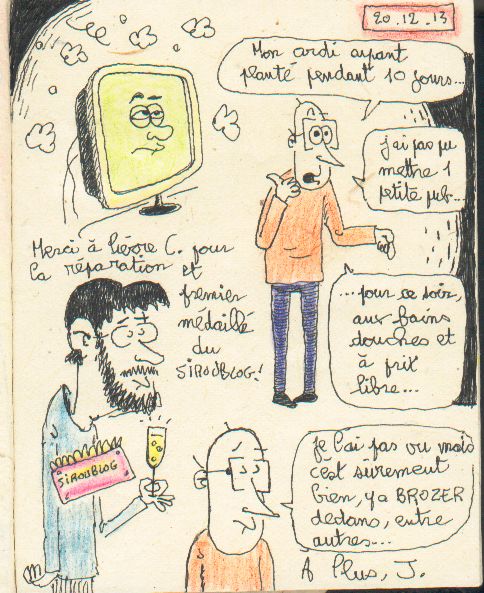 20.12.13
Mon ordi ayant
planté pendant 10 jours...
j'ai pas pu
mettre 1
petite pub...
...pour ce soir,
aux bains
douches et
à prix
libre...
Merci à lièvre C. pour
la réparation et
premier
médaillé
du
SIROUBLOG!
SIROUBLOG
Je l'ai pas vu mais
c'est surement
bien, y a BROZER
dedans, entre
autres...
A Plus, J.